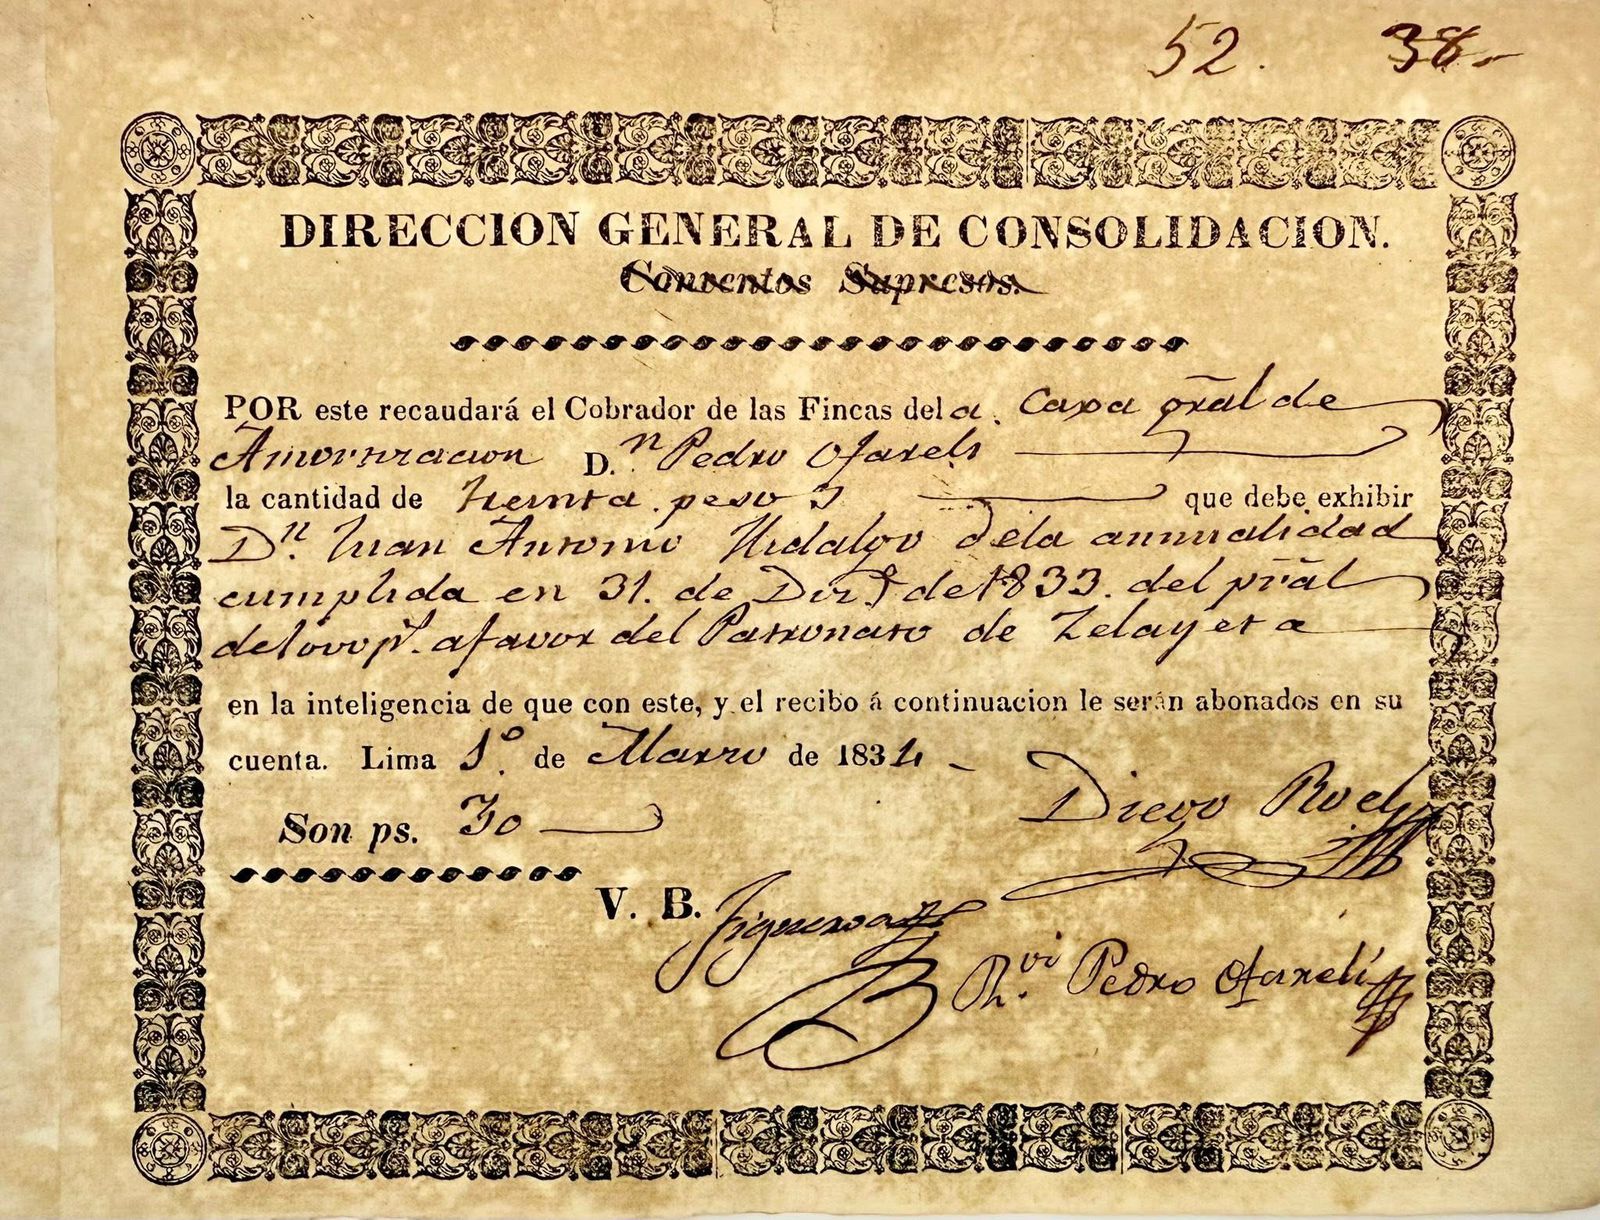 52. 38.
DIRECCION GENERAL DE CONSOLIDACION.
Conventos Supresos.
POR este recaudará el Cobrador de las Fincas dela. Caxa gr̃al de
Amortizacion D.n Pedro Ofareli
la cantidad de treinta pesos que debe exhibir
Dn. Juan Antonio Hidalgo dela annualidad
cumplida en 31. de Dize de 1833. del pr̃al
de 1000 ps. afavor del Patronato de Zelayeta
en la inteligencia de que con este, y el recibo á continuacion le serán abonados en su
cuenta. Lima 1º. de Marzo de 1834
Son ps. 30
Diego Roel
V. B. Figueroa
R.vi Pedro Ofareli